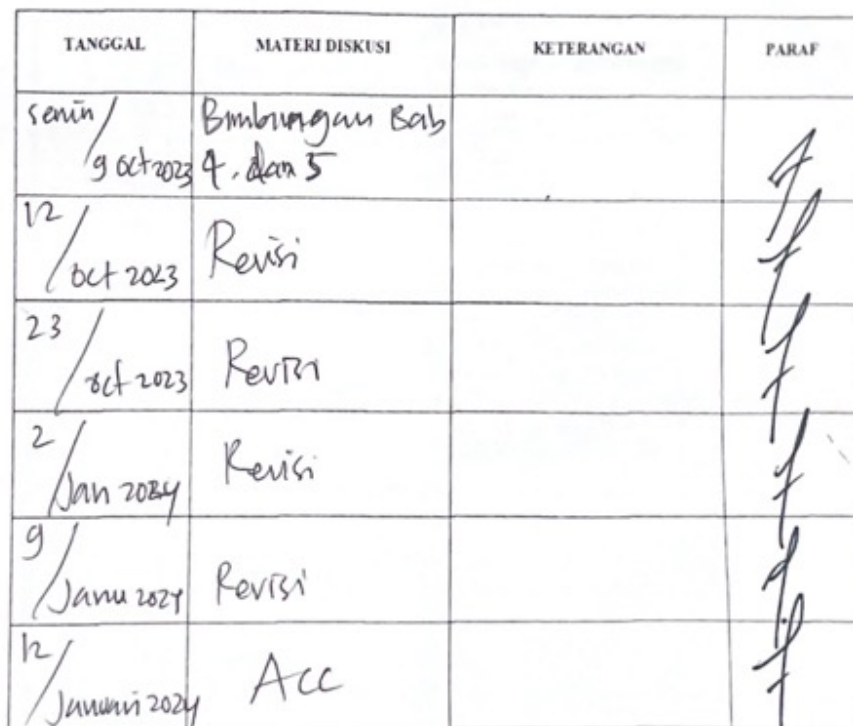 TANGGAL MATERI DISKUSI KETERANGAN PARAF
senin / 9 oct 2023 Bimbingan Bab
4. dan 5
12 / oct 2023 Revisi
23 / oct 2023 Revisi
2 / Jan 2024 Revisi
9 / Janu 2024 Revisi
12 / Januari 2024 Acc